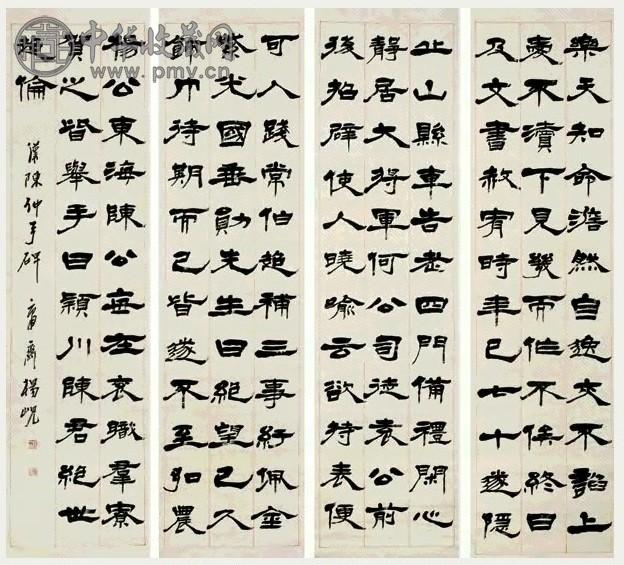 樂天知命澹然自逸交不諂上
愛不瀆下見幾而作不俟終日
及文書赦宥時年已七十遂隱
丘山縣車告老四門備禮閑心
靜居大將軍何公司徒袁公前
後招辟使人曉喻云欲特表便
可入踐常伯超補三事紆佩金
紫光國垂勳先生曰絕望已久
飾巾待期而已皆遂不至弘農
楊公東海陳公每在袞職羣寮
賀之皆舉手曰潁川陳君絕世
超倫
漢陳仲弓碑 庸齋楊峴
中华收藏网
www.pmy.cn